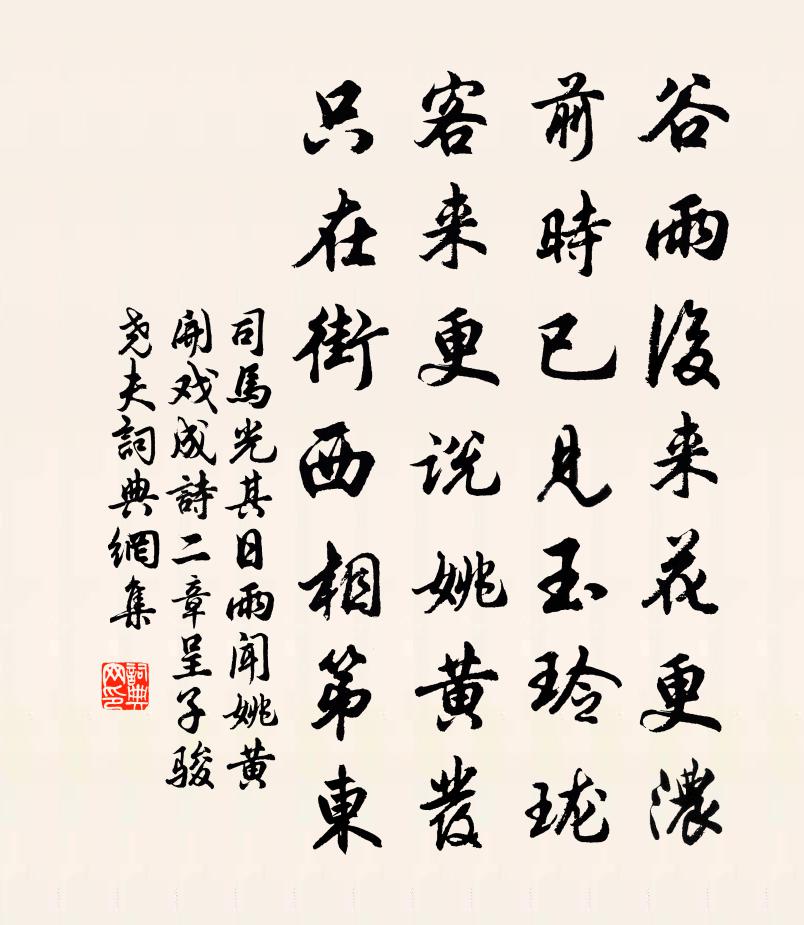 谷雨後来花更濃
前時已見玉玲珑
客来更説姚黄發
只在街西相第東
司馬光其日雨闻姚黄
開戏成詩二章呈子骏
尧夫詞典網集
詞典
网印